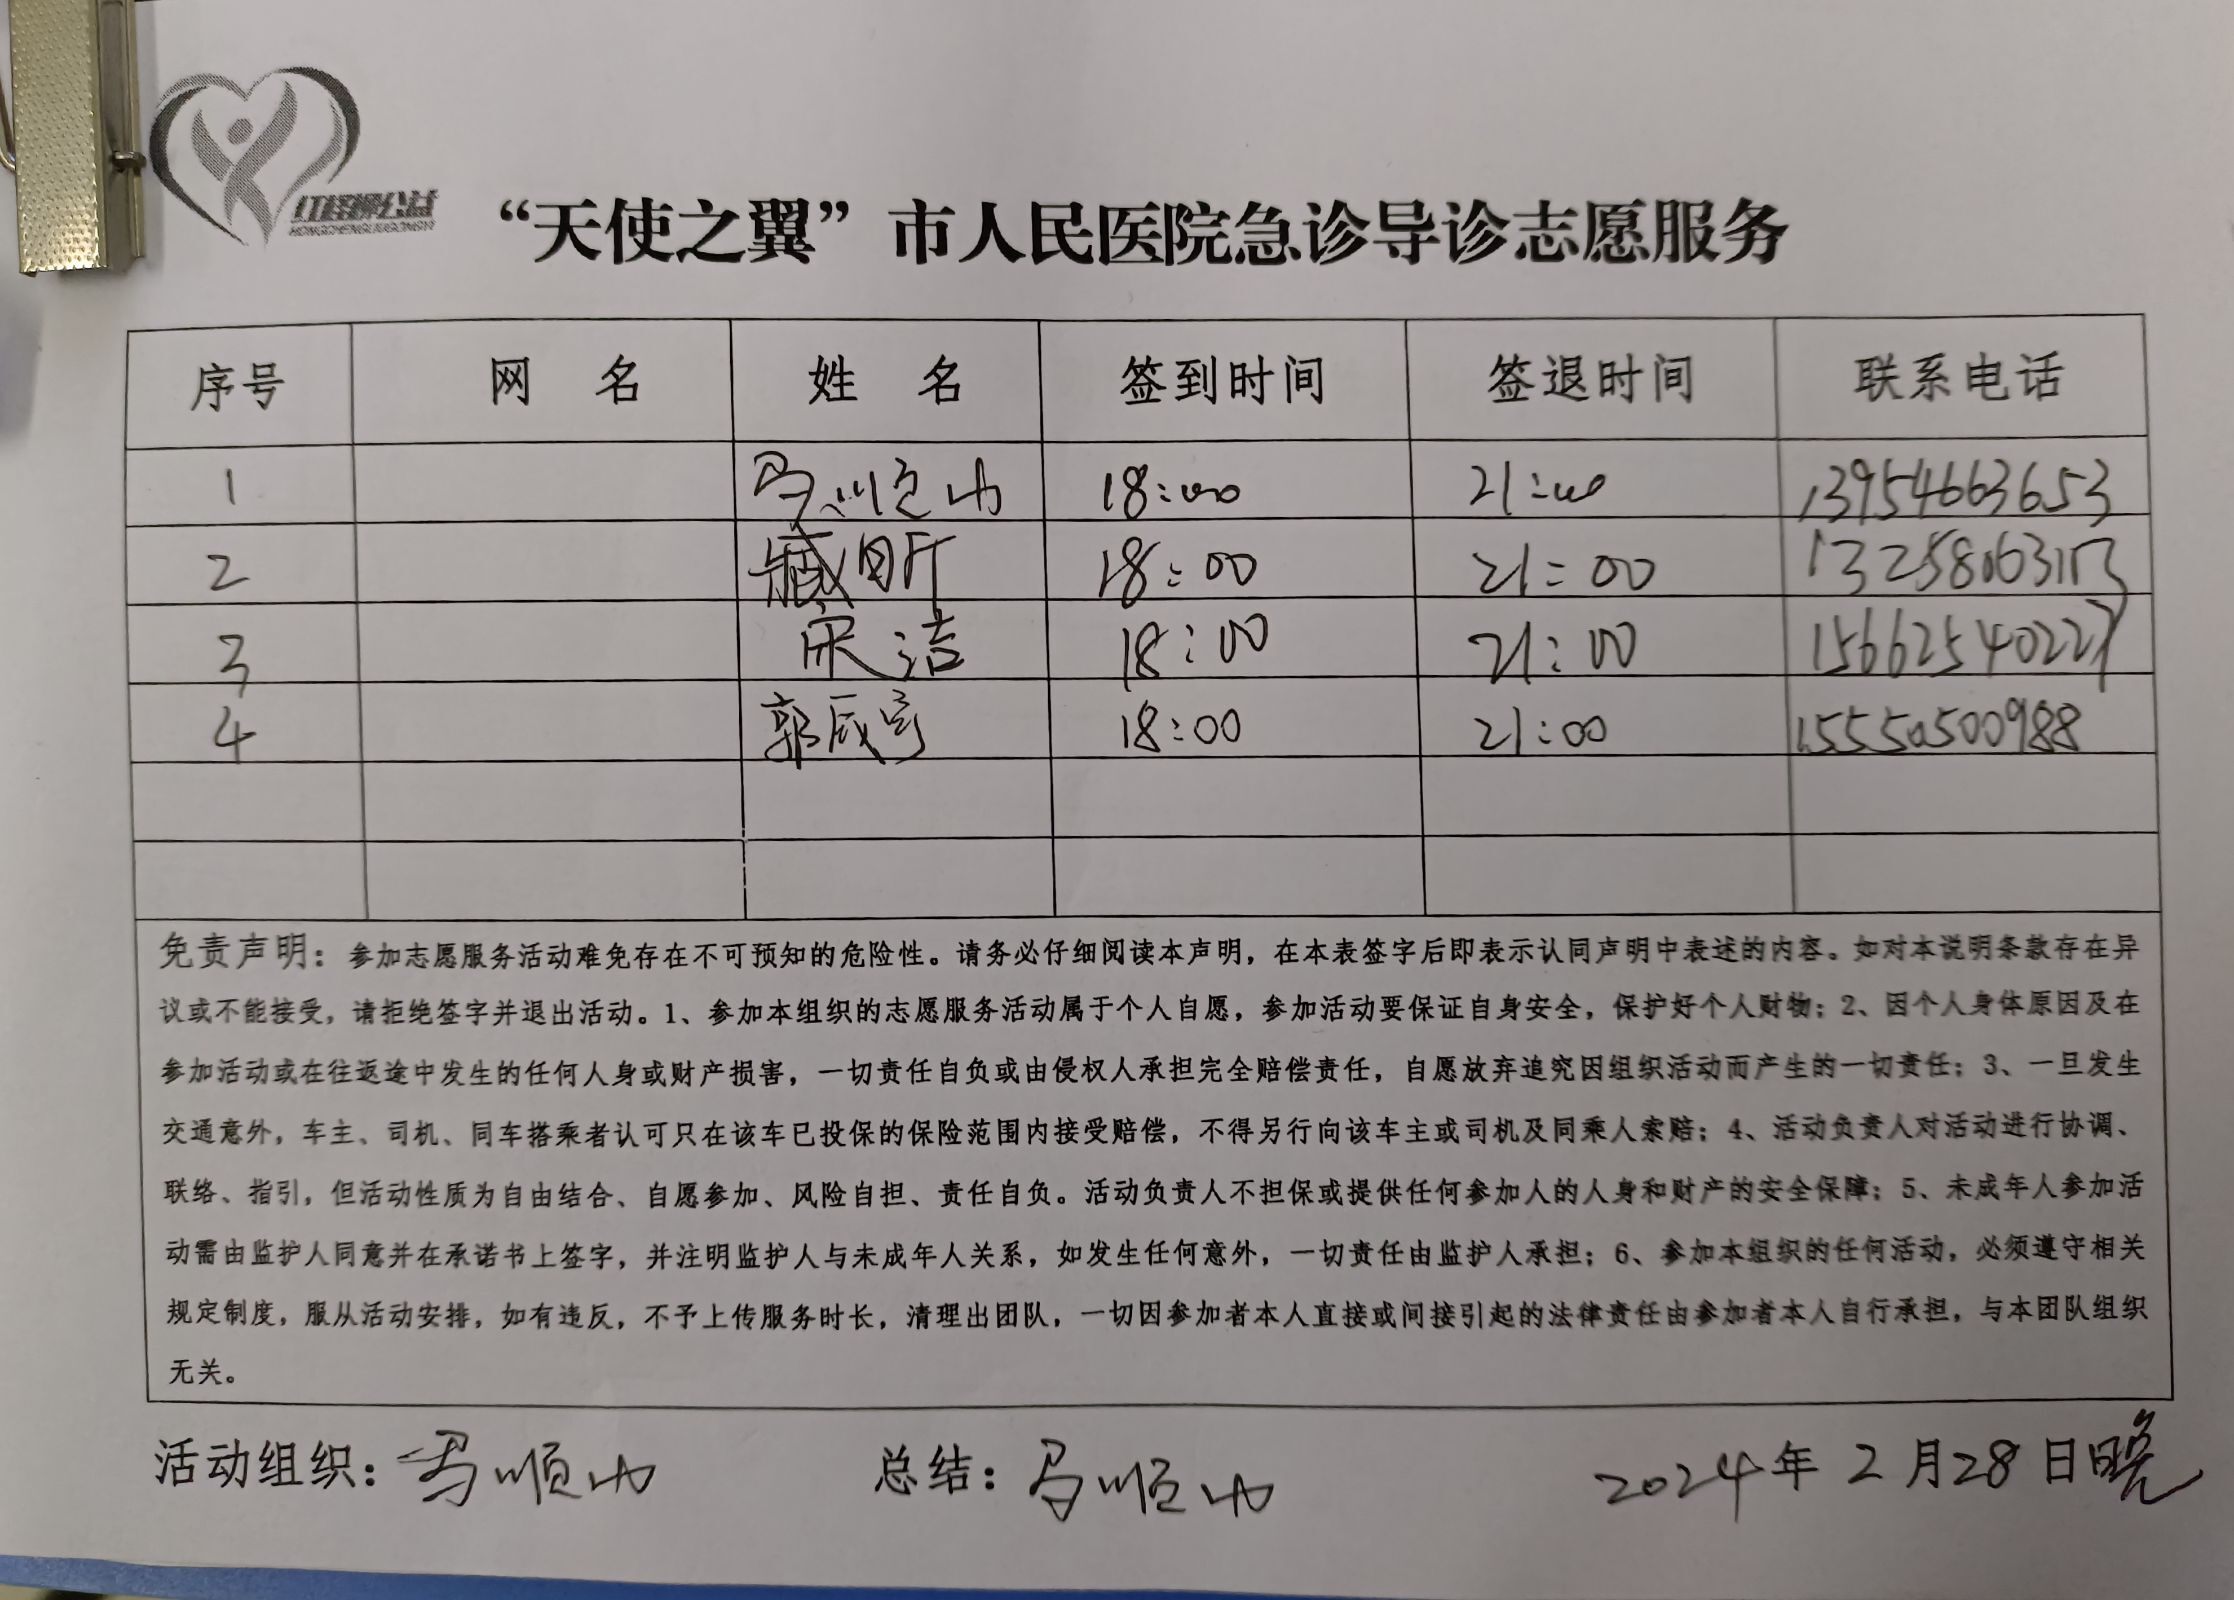 红柽柳公益
HONGCHENGLIUGONGYI
“天使之翼”市人民医院急诊导诊志愿服务
序号 网 名 姓 名 签到时间 签退时间 联系电话
1 马顺山 18:00 21:00 13954663653
2 臧 18:00 21:00
3 宋洁 18:00 21:00 15662540227
4 郭辰宇 18:00 21:00 15550500988
免责声明：参加志愿服务活动难免存在不可预知的危险性。请务必仔细阅读本声明，在本表签字后即表示认同声明中表述的内容。如对本说明条款存在异
议或不能接受，请拒绝签字并退出活动。1、参加本组织的志愿服务活动属于个人自愿，参加活动要保证自身安全，保护好个人财物；2、因个人身体原因及在
参加活动或在往返途中发生的任何人身或财产损害，一切责任自负或由侵权人承担完全赔偿责任，自愿放弃追究因组织活动而产生的一切责任；3、一旦发生
交通意外，车主、司机、同车搭乘者认可只在该车已投保的保险范围内接受赔偿，不得另行向该车主或司机及同乘人索赔；4、活动负责人对活动进行协调、
联络、指引，但活动性质为自由结合、自愿参加、风险自担、责任自负。活动负责人不担保或提供任何参加人的人身和财产的安全保障；5、未成年人参加活
动需由监护人同意并在承诺书上签字，并注明监护人与未成年人关系，如发生任何意外，一切责任由监护人承担；6、参加本组织的任何活动，必须遵守相关
规定制度，服从活动安排，如有违反，不予上传服务时长，清理出团队，一切因参加者本人直接或间接引起的法律责任由参加者本人自行承担，与本团队组织
无关。
活动组织：马顺山 总结：马顺山 2024年2月28日晚